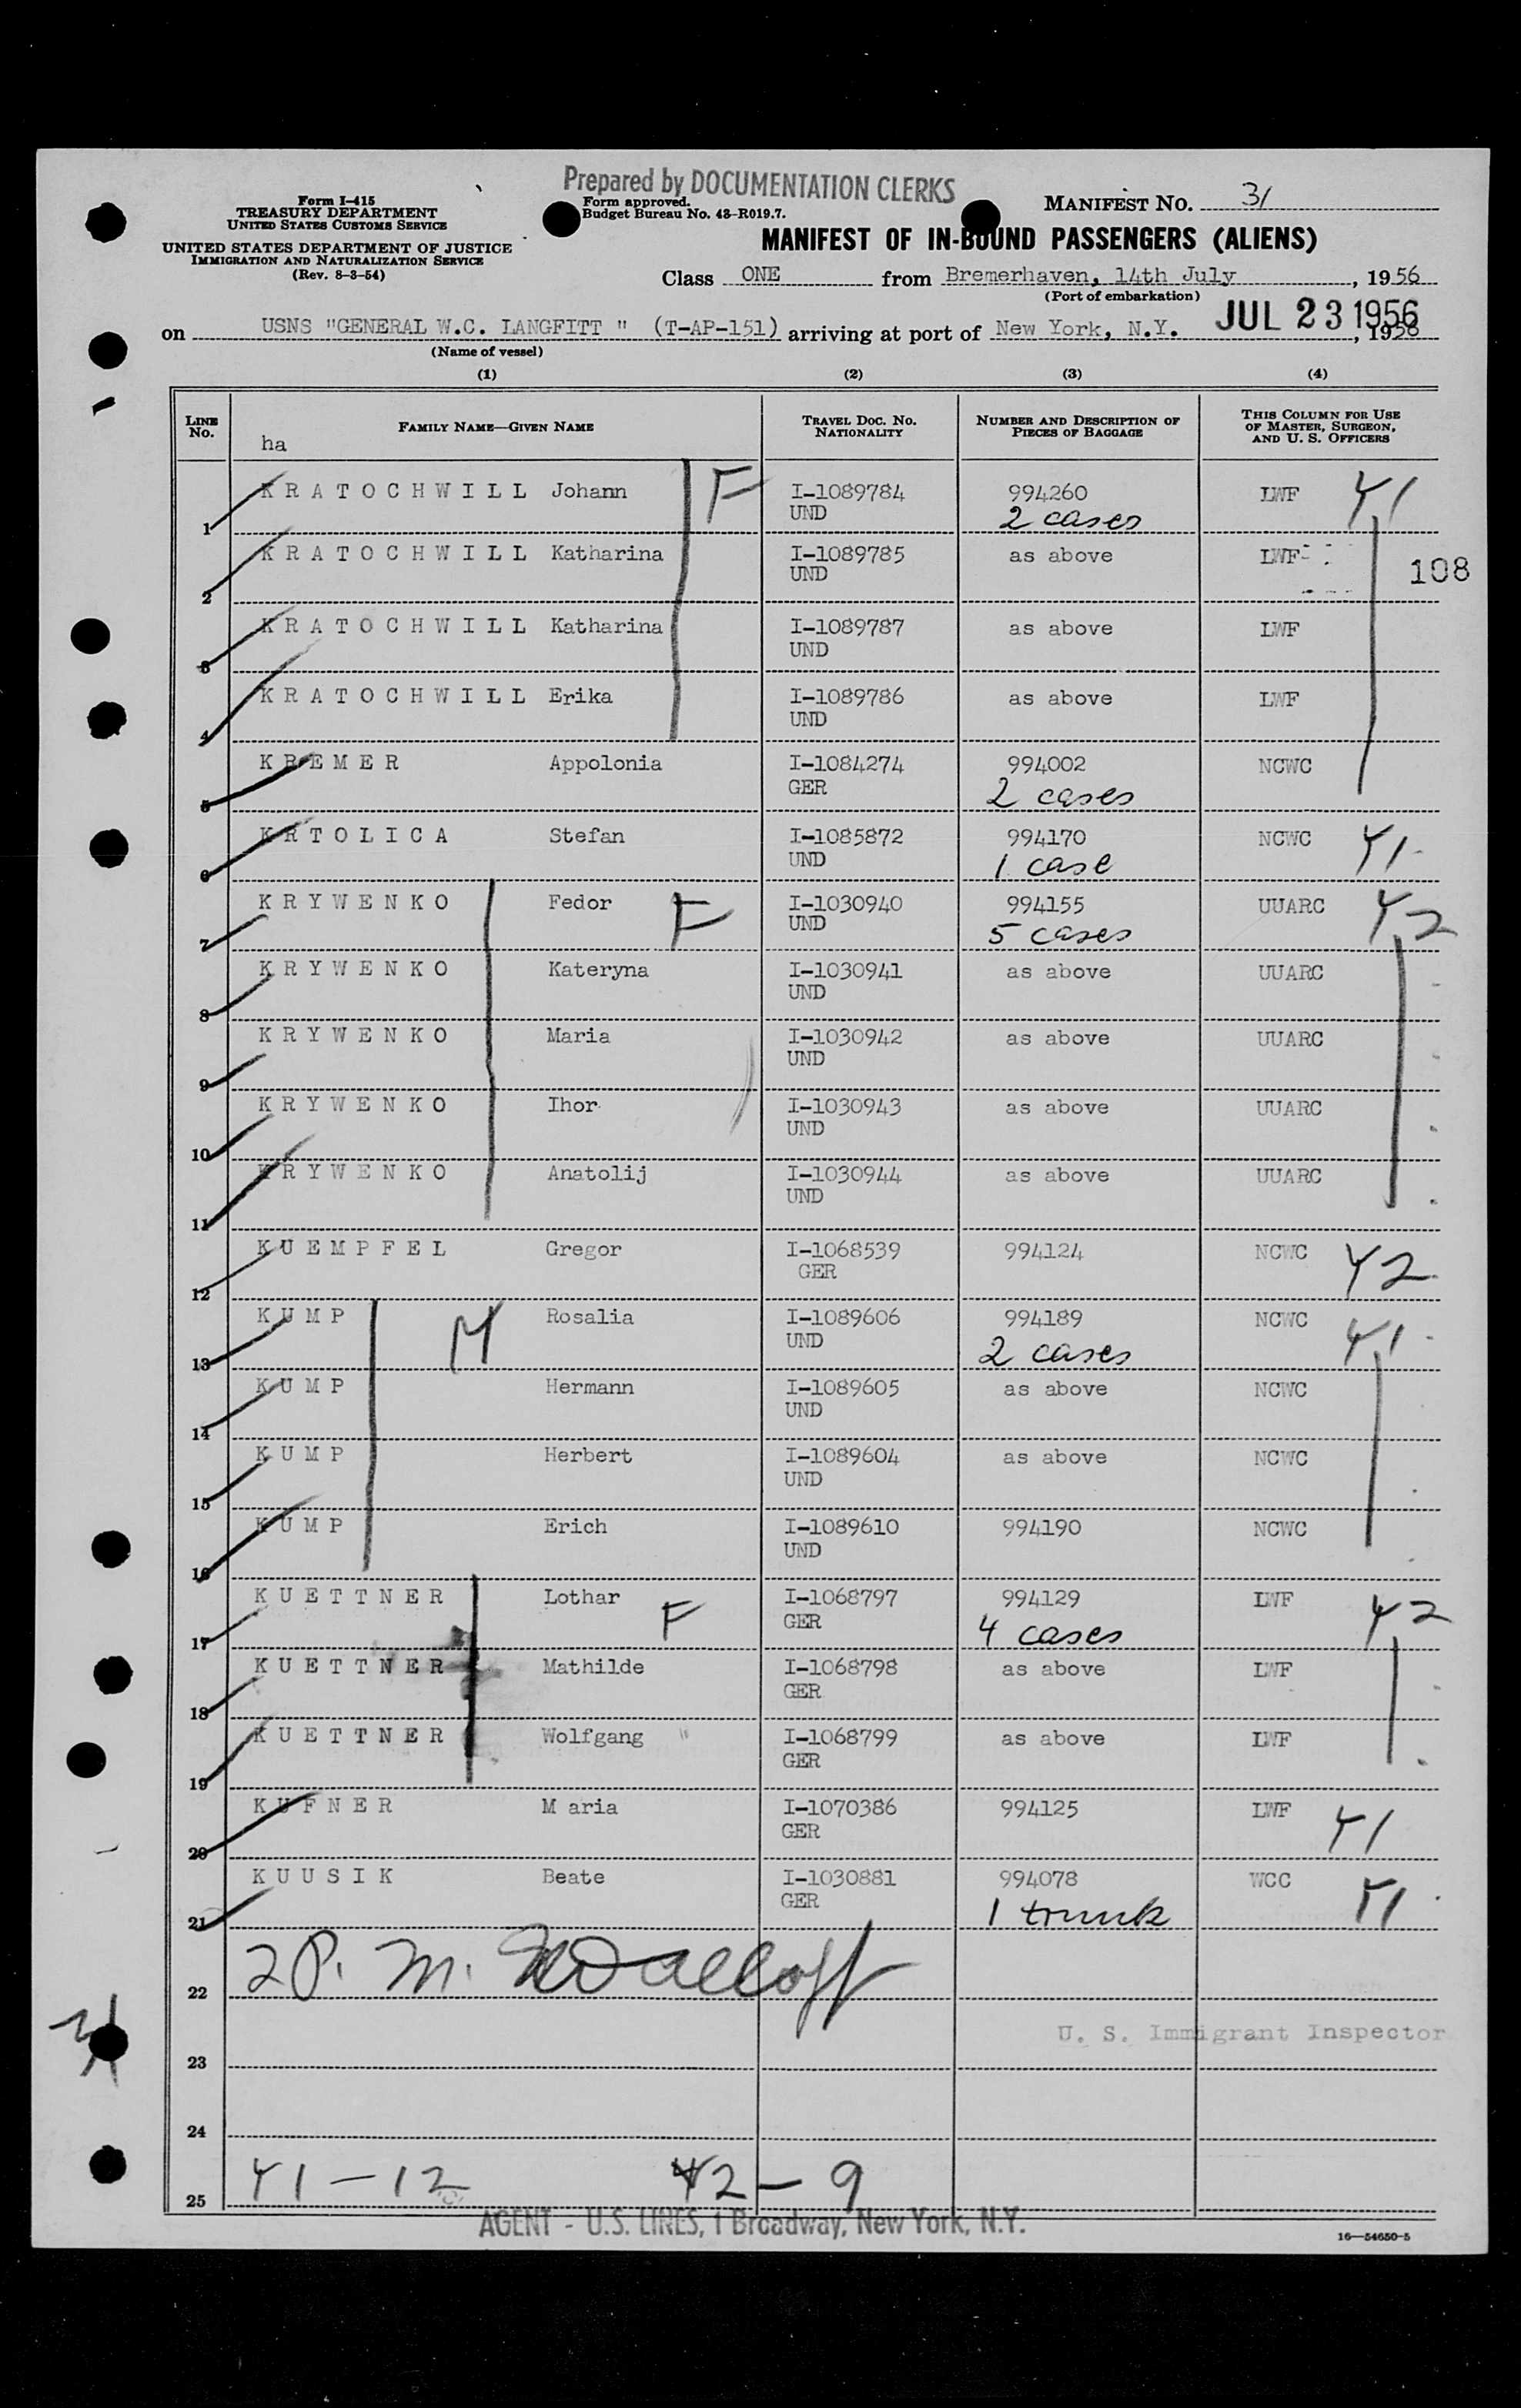 Prepared by DOCUMENTATION CLERKS
Form I-415
TREASURY DEPARTMENT
UNITED STATES CUSTOMS SERVICE
UNITED STATES DEPARTMENT OF JUSTICE
IMMIGRATION AND NATURALIZATION SERVICE
(Rev. 8-3-54)
Form approved.
Budget Bureau No. 43-R019.7.
MANIFEST NO. 31
MANIFEST OF IN-BOUND PASSENGERS (ALIENS)
Class ONE from Bremerhaven, 14th July, 1956
(Port of embarkation)
on USNS "GENERAL W.C. LANGFITT " (T-AP-151) arriving at port of New York, N.Y. JUL 23 1956, 1956
(Name of vessel)
(1) (2) (3) (4)
LINE NO. FAMILY NAME—GIVEN NAME TRAVEL DOC. NO. NATIONALITY NUMBER AND DESCRIPTION OF PIECES OF BAGGAGE THIS COLUMN FOR USE OF MASTER, SURGEON, AND U. S. OFFICERS
ha
1 KRATOCHWILL Johann F I-1089784 UND 994260 2 cases LWF 41
2 KRATOCHWILL Katharina I-1089785 UND as above LWF 108
3 KRATOCHWILL Katharina I-1089787 UND as above LWF
4 KRATOCHWILL Erika I-1089786 UND as above LWF
5 KREMER Appolonia I-1084274 GER 994002 2 cases NCWC
6 KRTOLICA Stefan I-1085872 UND 994170 1 case NCWC 41
7 KRYWENKO Fedor F I-1030940 UND 994155 5 cases UUARC 42
8 KRYWENKO Kateryna I-1030941 UND as above UUARC
9 KRYWENKO Maria I-1030942 UND as above UUARC
10 KRYWENKO Ihor I-1030943 UND as above UUARC
11 KRYWENKO Anatolij I-1030944 UND as above UUARC
12 KUEMPFEL Gregor I-1068539 GER 994124 NCWC 42
13 KUMP M Rosalia I-1089606 UND 994189 2 cases NCWC 41
14 KUMP Hermann I-1089605 UND as above NCWC
15 KUMP Herbert I-1089604 UND as above NCWC
16 KUMP Erich I-1089610 UND 994190 NCWC
17 KUETTNER Lothar F I-1068797 GER 994129 4 cases LWF 42
18 KUETTNER Mathilde I-1068798 GER as above LWF
19 KUETTNER Wolfgang I-1068799 GER as above LWF
20 KUFNER M aria I-1070386 GER 994125 LWF 41
21 KUUSIK Beate I-1030881 GER 994078 1 trunk WCC 41
22
U. S. Immigrant Inspector
23
24
25 41 - 12 42 - 9
AGENT - U.S. LINES, 1 Broadway, New York, N.Y.
16—54650-5